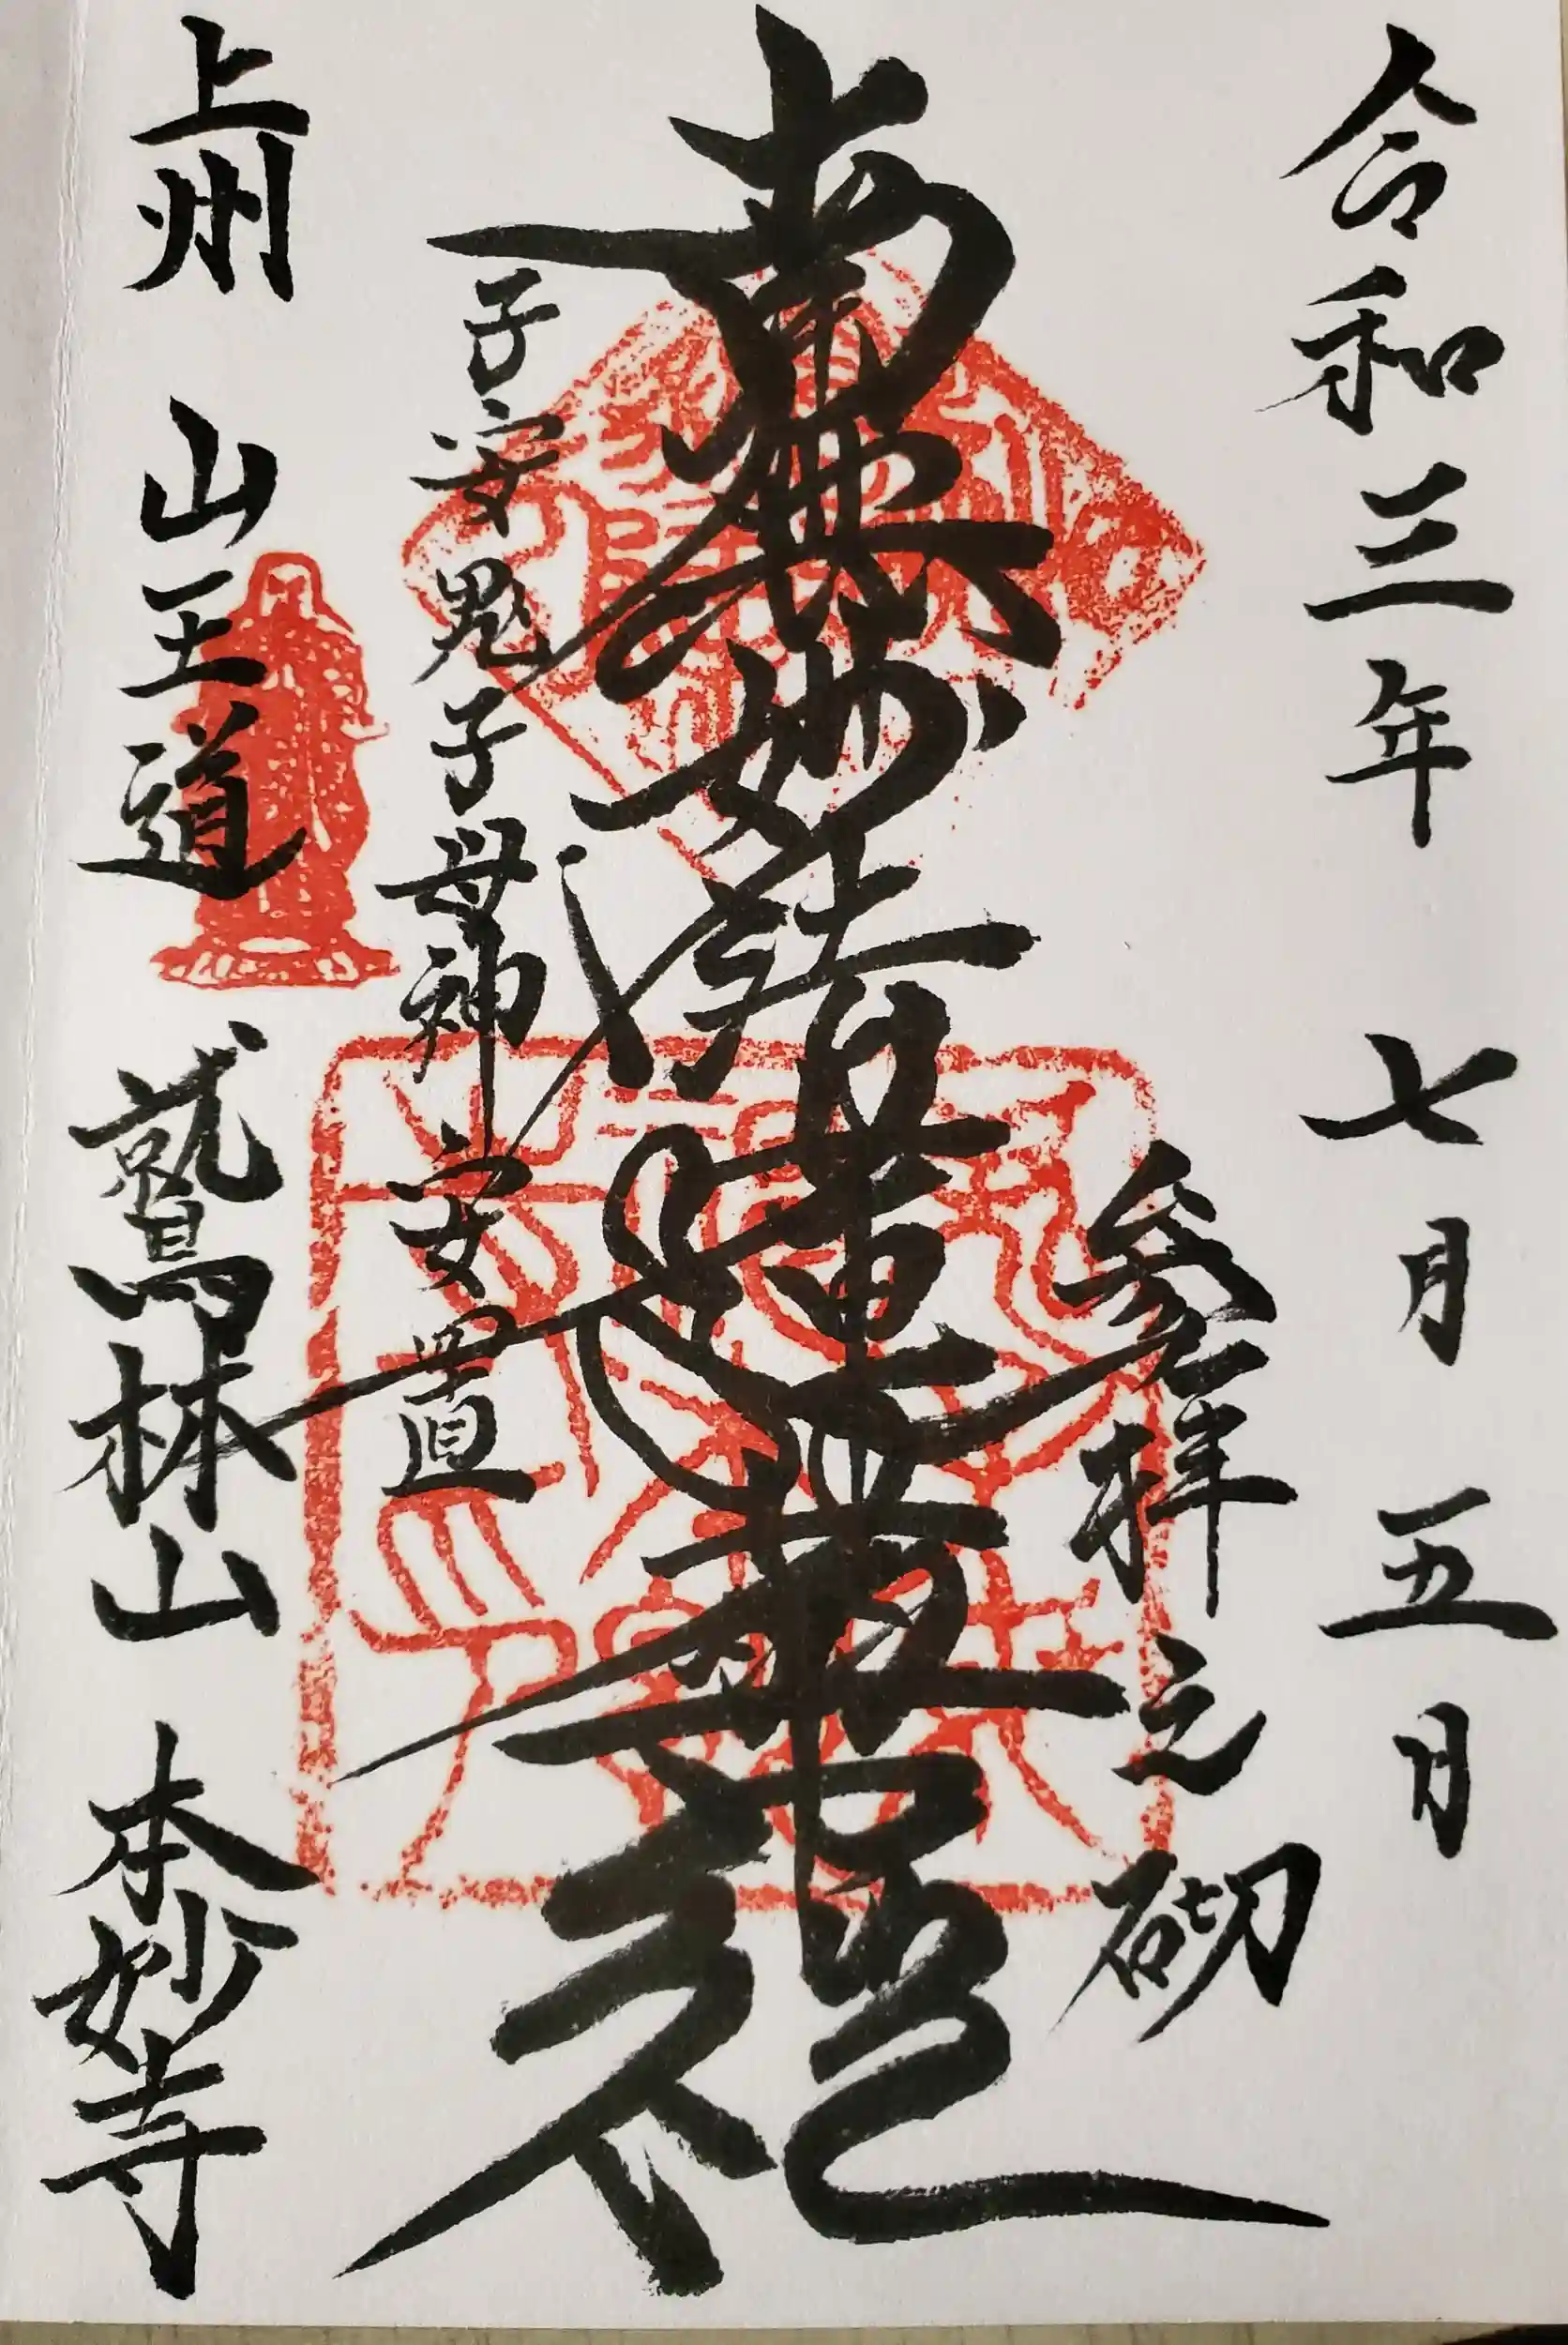 令和三年 七月 五日
參拝之砌
南無妙法蓮華経
子安鬼子母神安置
上州 山王道 鷲林山 本妙寺